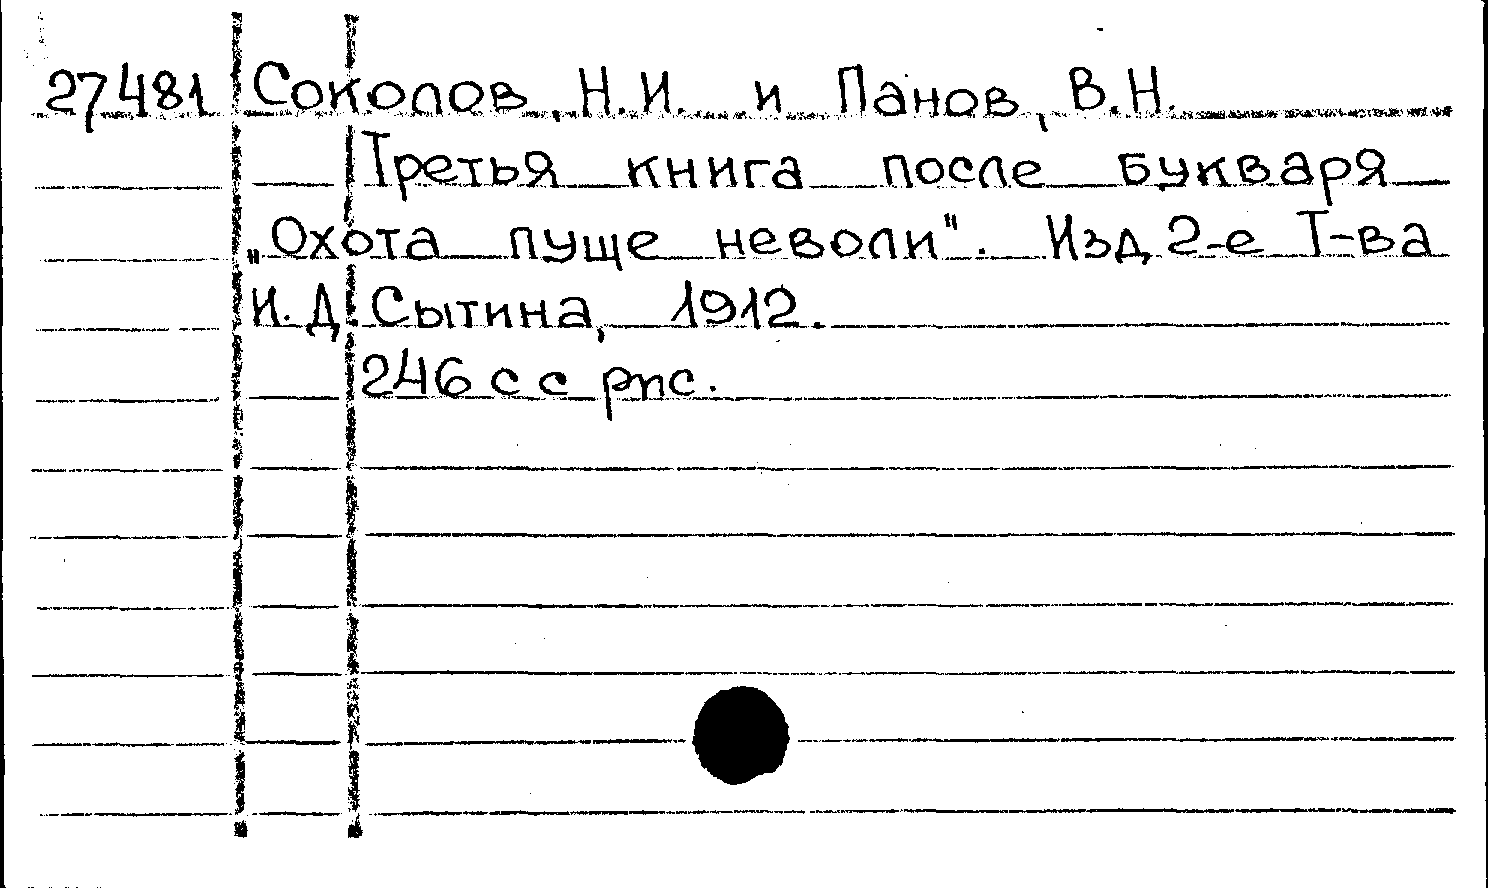 27481 Соколов, Н.И. и Панов, В.Н.
Третья книга после букваря
„Охота пуще неволи". Изд 2-е Т-ва
И.Д. Сытина, 1912.
246 с с рпс.